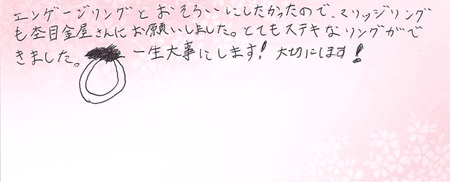 エンゲージリングとおそろいにしたかったので、マリッジリング
も杢目金屋さんにお願いしました。とてもステキなリングがで
きました。 一生大事にします! 大切にします!